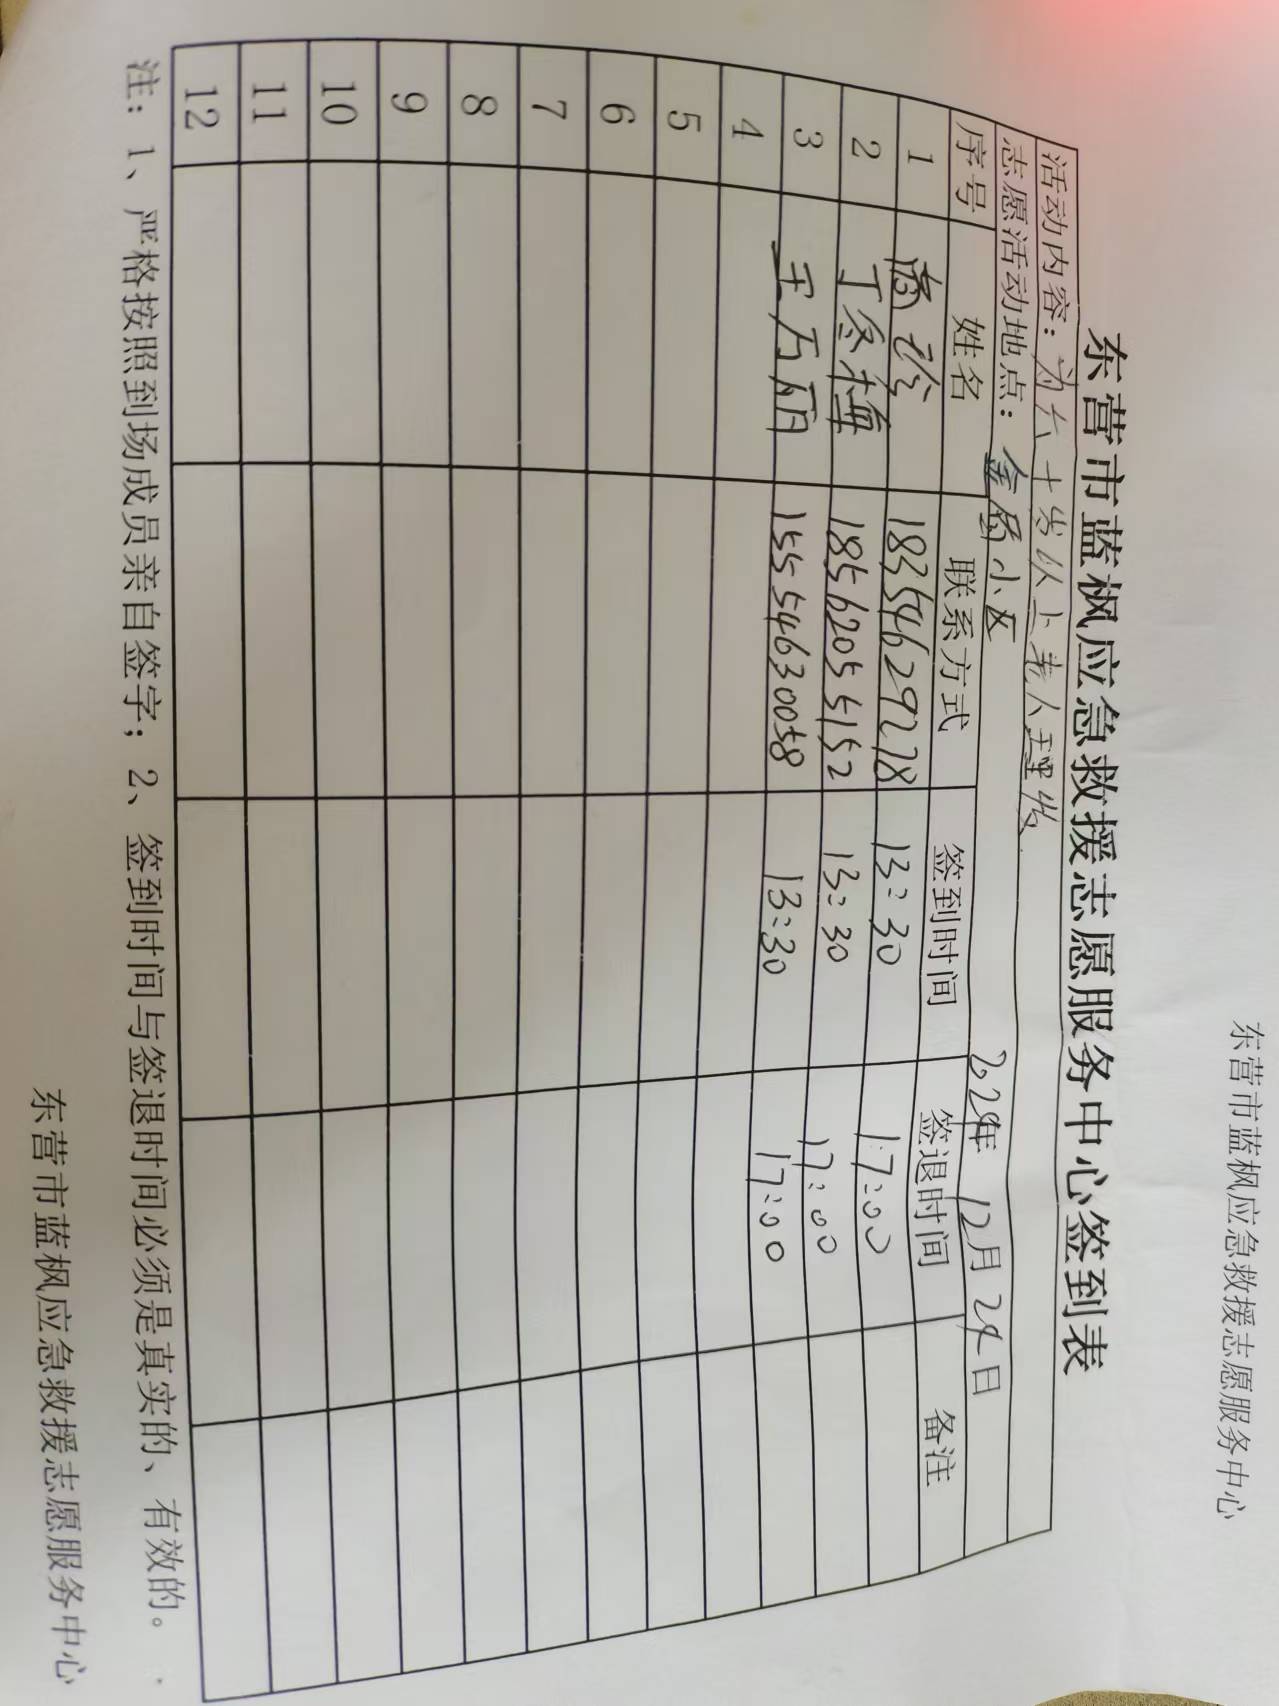 东营市蓝枫应急救援志愿服务中心
东营市蓝枫应急救援志愿服务中心签到表
活动内容：为六十岁以上老人理发.
志愿活动地点：金 小区 2024年 12月 24日
序号 姓名 联系方式 签到时间 签退时间 备注
1 玲 18354629278 13:30 17:00
2 丁冬梅 18562055152 13:30 17:00
3 王万丽 15554630058 13:30 17:00
4
5
6
7
8
9
10
11
12
注：1、严格按照到场成员亲自签字；2、签到时间与签退时间必须是真实的、有效的。
东营市蓝枫应急救援志愿服务中心